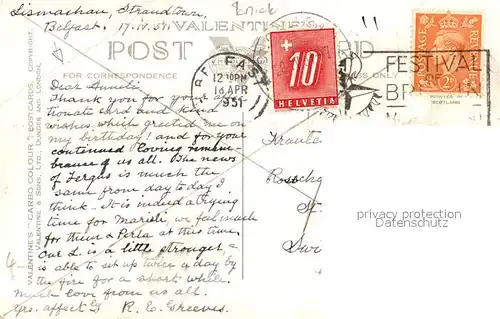 Lismachan, Strandtown,
Belfast. 17.IV.51.
VALENTINE'S
POST CARD
FOR CORRESPONDENCE
ONLY
Dear Anneli:
Thank you for your
tionate card and kind
wishes which greeted me on
my birthday! and for your
continued loving remem-
brance of us all. The news
of Fergus is much the
same from day to day I
think. It is indeed a trying
time for Marieli, we feel much
for them & Perla at this time.
Our L. is a little stronger &
is able to sit up twice a day by
the fire for a short while.
Much love from us all.
Yrs. affectly R. E. Greeves.
VALENTINE'S "CARBO COLOUR" POSTCARDS. COPYRIGHT.
VALENTINE & SONS, LTD., DUNDEE AND LONDON
BELFAST
12 10PM
18 APR
1951
+
10
HELVETIA
FESTIVAL
OF
BR
POSTAGE
REVENUE
PRINTED IN
SCOTLAND
privacy protection
Datenschutz